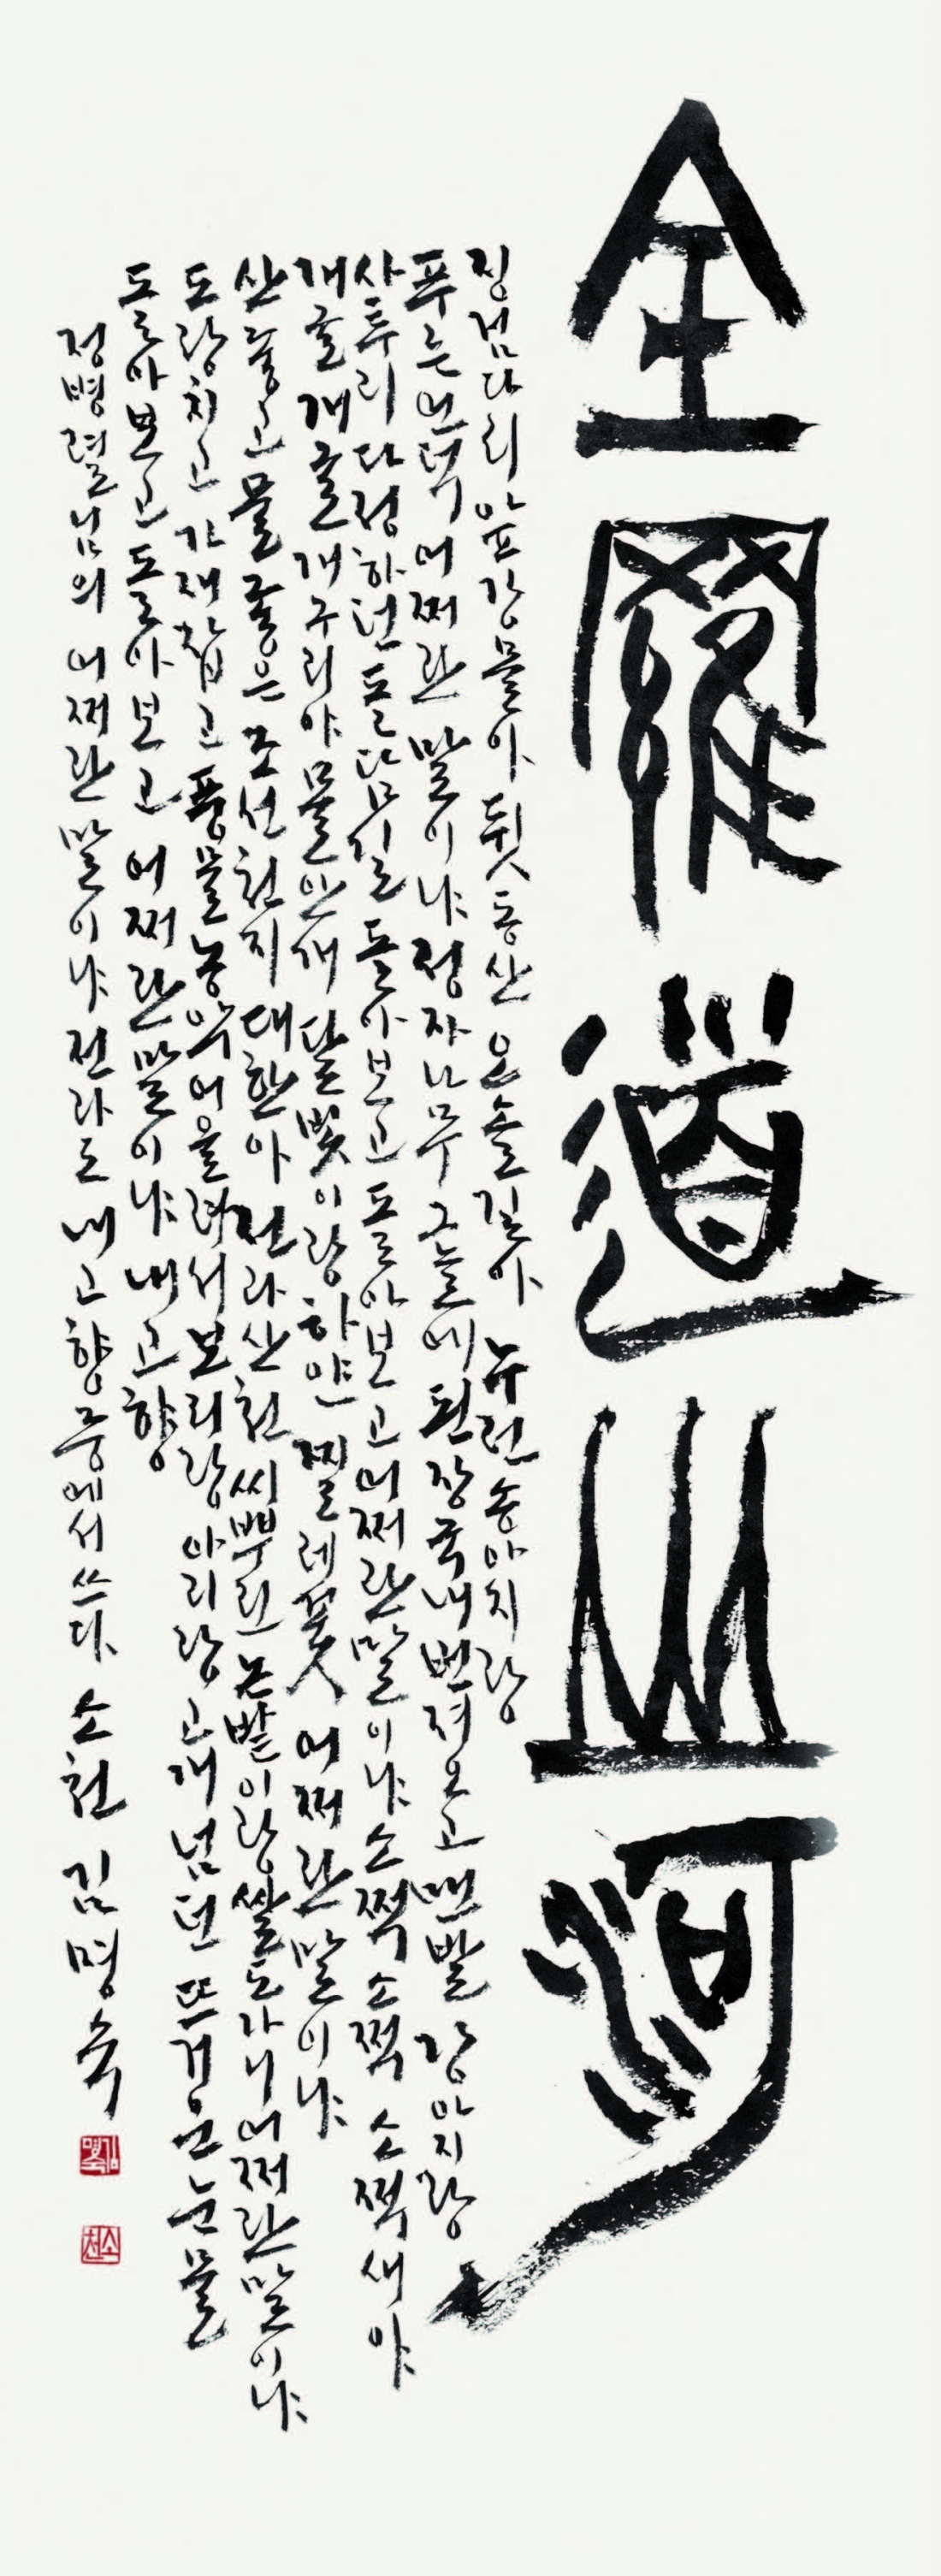 全羅道山河
징검다리 앞강물아 뒷동산 오솔길아 누런송아지랑
푸른언덕 어쩌란 말이냐 정자나무 그늘에 된장국내 번져오고 맨발 강아지랑
사투리 다정하던 돌담길 돌아보고 돌아보고 어쩌란말이냐 소쩍 소쩍 소쩍새야
개굴개굴 개구리야 물안개 달빛이랑 하얀 찔레꽃 어쩌란 말이냐
산좋고 물좋은 조선천지 대한아 전라산천 씨뿌린 논밭이랑 쌀도가니 어쩌란말이냐
도랑치고 가재잡고 풍물농악 어울려서 보리랑 아리랑고개 넘던 뜨거운 눈물
돌아보고 돌아보고 어쩌란말이냐 내고향
정병렬님의 어쩌란 말이냐 전라도 내고향 중에서 쓰다 소천 김명숙
김명숙
소천